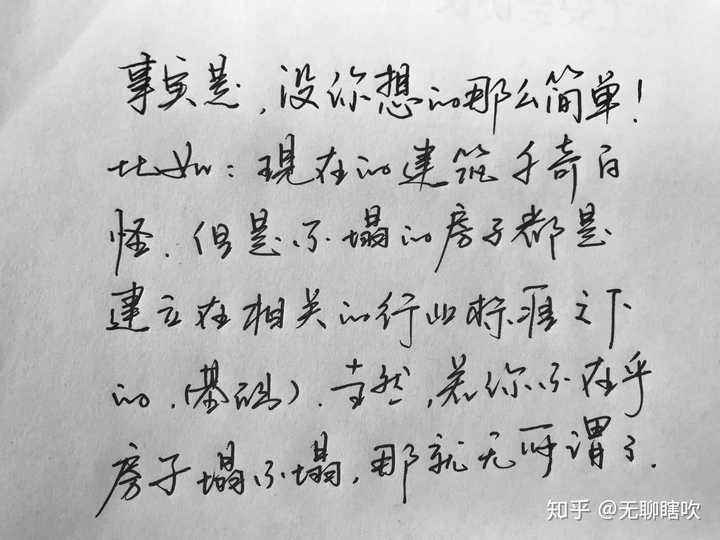 事实是，没你想的那么简单！
比如：现在的建筑千奇百
怪．但是不塌的房子都是
建立在相关的行业标准之下
的．（基础）．当然，若你不在乎
房子塌不塌，那就无所谓了．
知乎 @无聊瞎吹